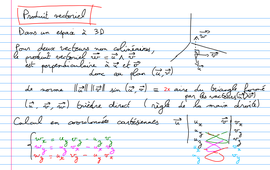 Produit vectoriel
Dans un espace à 3D
Pour deux vecteurs non colinéaires,
le produit vectoriel w = u ∧ v
est perpendiculaire à u et v
donc au plan (u, v)
de norme ||u|| ||v|| sin (u, v) = 2x aire du triangle formé
par les vecteurs (u, v)
(u, v, w) trièdre direct (règle de la main droite)
Calcul en coordonnées cartésiennes